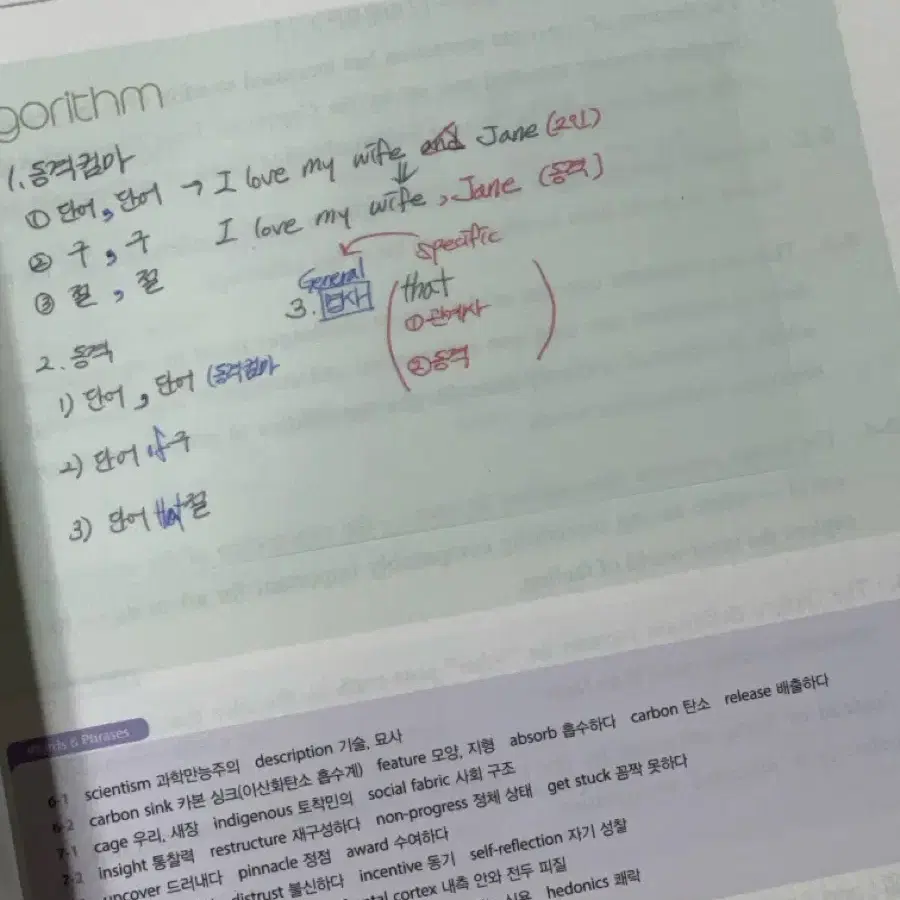 gorithm
1. 동격컴마
① 단어, 단어 → I love my wife and Jane (2인)
I love my wife, Jane (동격)
② 구, 구
③ 절, 절
Specific
General
3. 명사 that
① 관계사
② 동격
2. 동격
1) 단어, 단어 (동격컴마
2) 단어 of 구
3) 단어 that 절
Words & Phrases
6-1 scientism 과학만능주의 description 기술, 묘사
6-2 carbon sink 카본 싱크(이산화탄소 흡수계) feature 모양, 지형 absorb 흡수하다 carbon 탄소 release 배출하다
7-1 cage 우리, 새장 indigenous 토착민의 social fabric 사회 구조
7-2 insight 통찰력 restructure 재구성하다 non-progress 정체 상태 get stuck 꼼짝 못하다
uncover 드러내다 pinnacle 정점 award 수여하다
distrust 불신하다 incentive 동기 self-reflection 자기 성찰
cortex 내측 안와 전두 피질
hedonics 쾌락